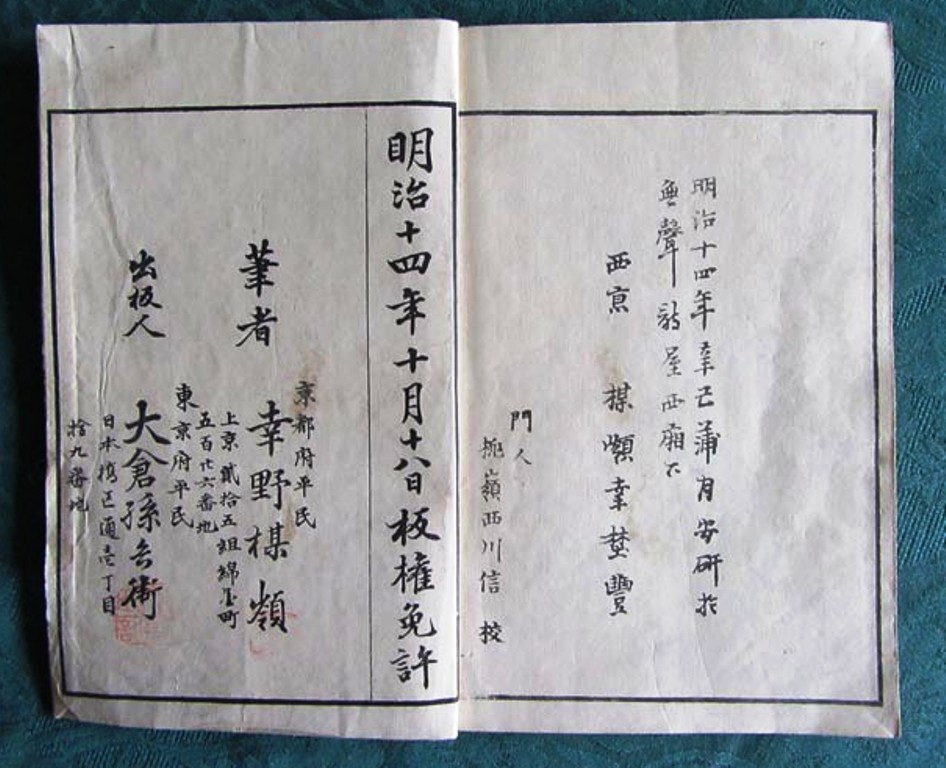 明治十四年辛巳蒲月安研於
無聲詩屋西廂下
西京 楳嶺幸楳豐
門人
西川信 校
明治十四年十月十八日板權免許
京都府平民
筆者 幸野楳嶺
上京貳拾五組綿屋町
五百廿六番地
東京府平民
出板人 大倉孫兵衛
日本橋區通壱丁目
拾九番地